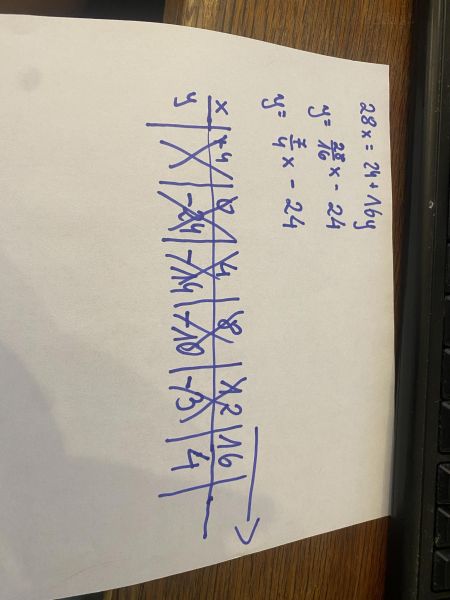 28x = 24 + 16y
y = 28/16 x - 24
y = 7/4 x - 24
x | -4 | 0 | 4 | 8 | 12 | 16
y | | -24 | -14 | -10 | -3 | 4